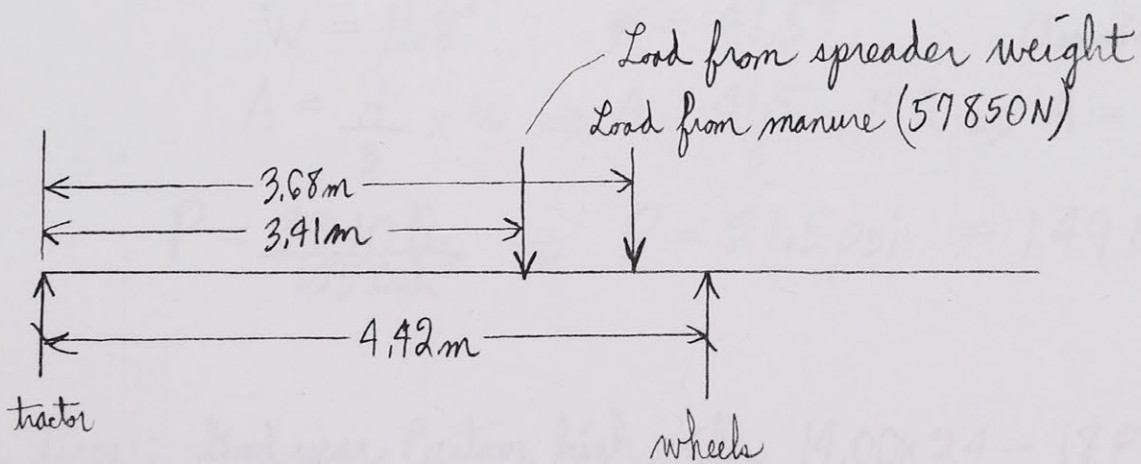 Load from spreader weight
Load from manure (57850N)
3,68m
3,41m
4,42m
tractor
wheels